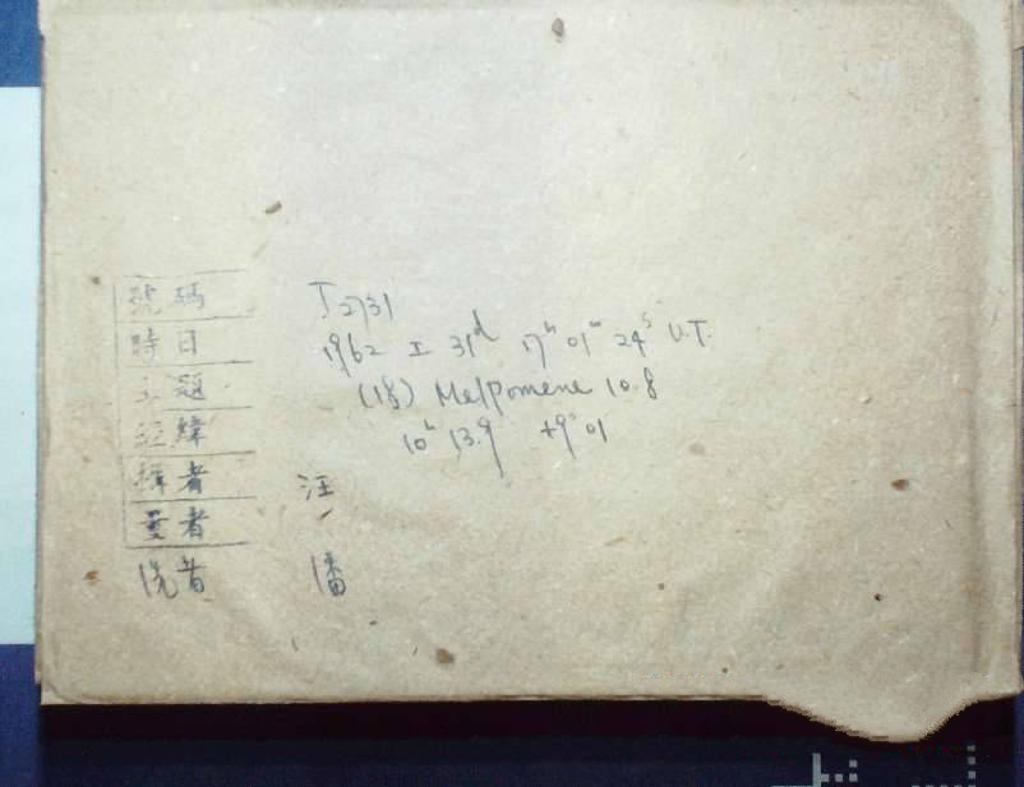 號碼 J2731
時日 1962 I 31d 17h 01m 24s U.T.
主題 (18) Melpomene 10.8
經緯 10h 13.9 +9° 01
攝者 汪
量者
洗者 潘